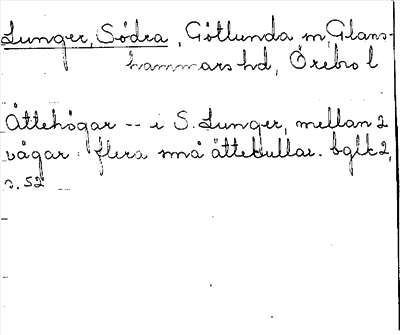 Lunger, Södra, Götlunda sn, Glans-
hammars hd, Örebro l
Ättehögar -- i S. Lunger, mellan 2
vägar : flera små ättekullar. bglk 2,
s. 52